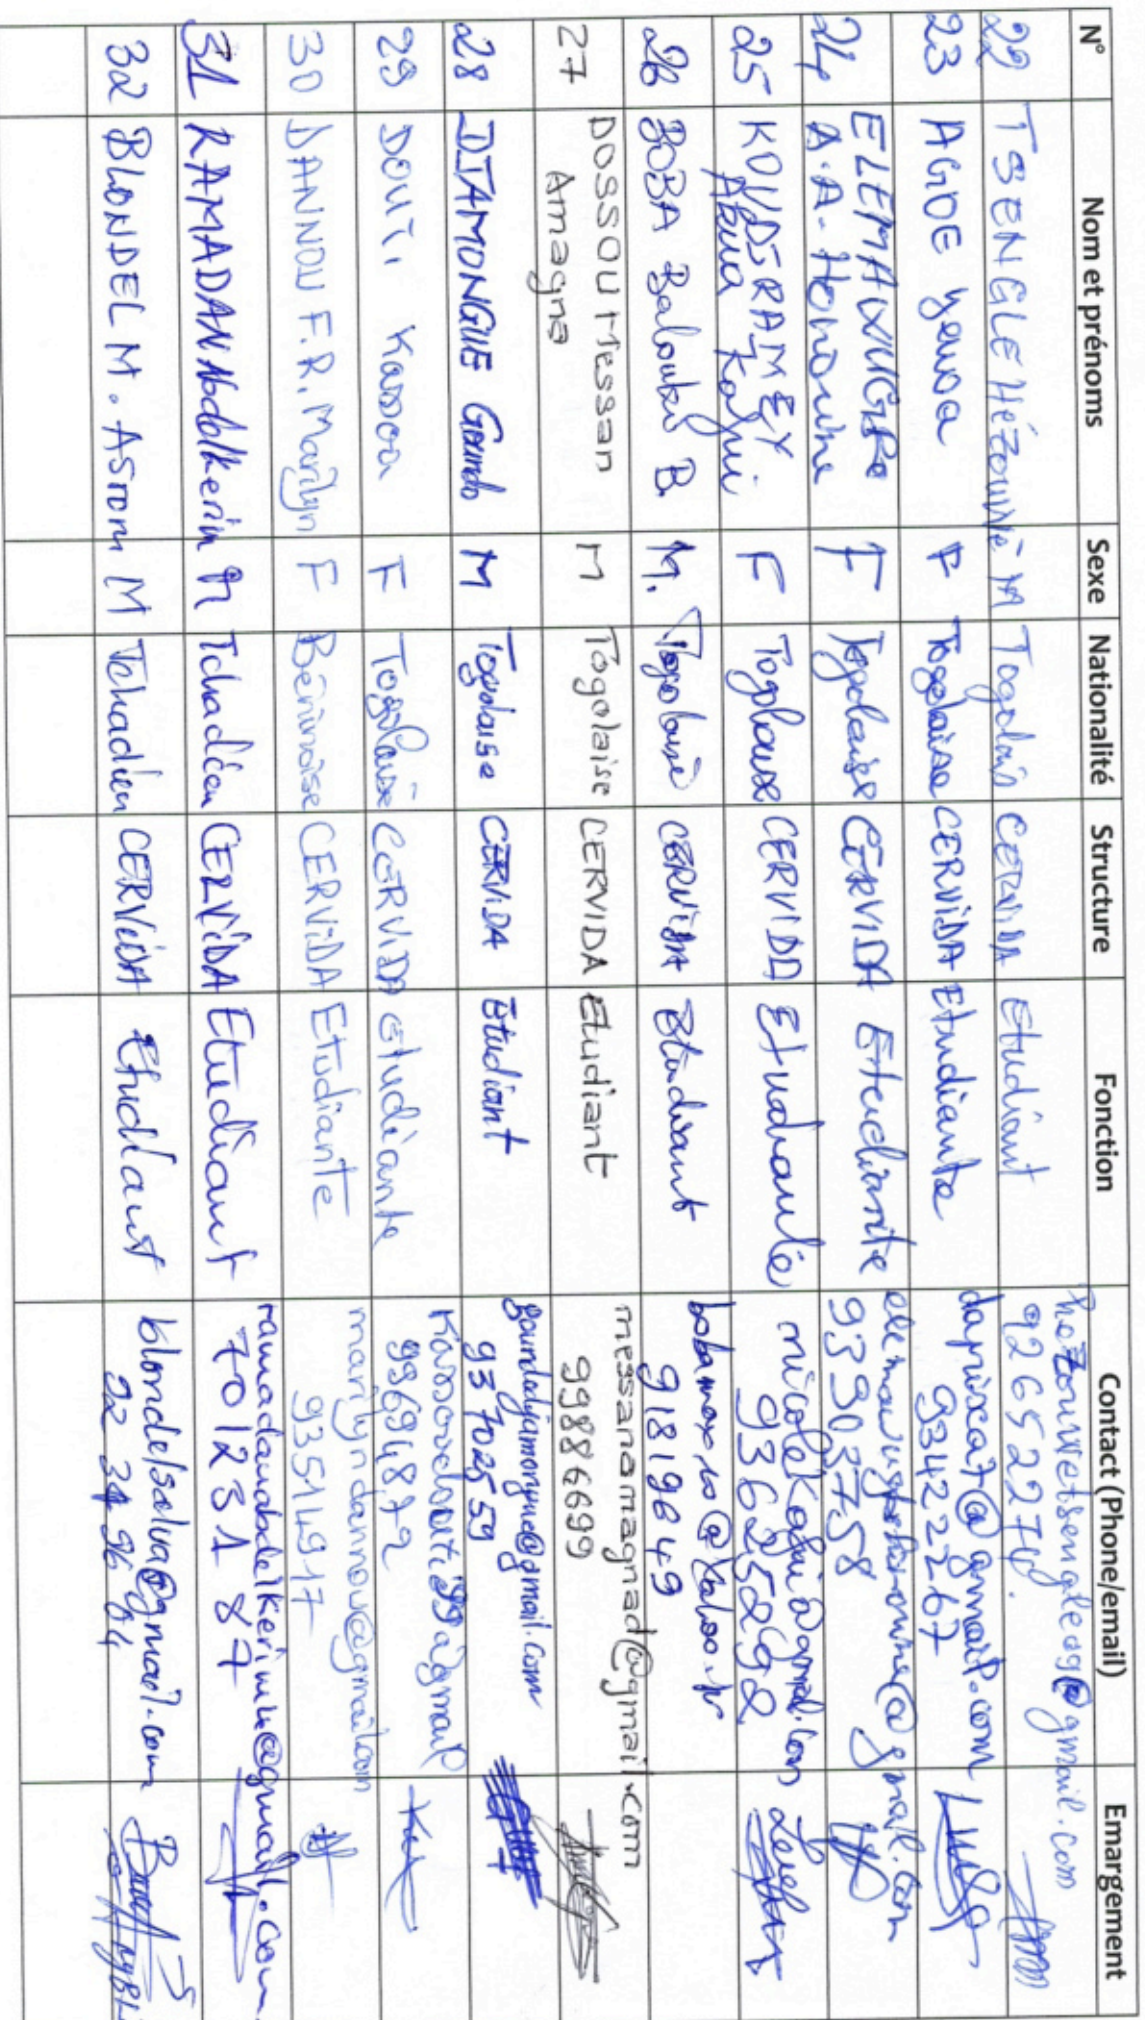 N° Nom et prénoms Sexe Nationalité Structure Fonction Contact (Phone/email) Emargement
22 TSENGLE Hézouwè M Togolais CERVIDA Etudiant hezouwetsengle09@gmail.com
92652274.
23 AGIDE Yawa F Togolaise CERVIDA Etudiante dapixca7@gmail.com
93422267
24 ELEMAWUGBE
A.A. Honorine F Togolaise CERVIDA Etudiante elemawugbehonorine@gmail.com
93903758
25 KOVIDJRAMEY.
Akua Kafui F Togolaise CERVIDA Etudiante nicolekafui@gmail.com
93625292
26 BOBA Baloubi B. M. Togolaise CERVIDA Etudiant bobamax10@yahoo.fr
91819649
27 DOSSOU Messan
Amagna M Togolaise CERVIDA Etudiant messanamagnad@gmail.com
99886699
28 DJAMONGUE Goundo M Togolaise CERVIDA Etudiant goundodjamongue@gmail.com
93702559
29 DOUTI Kassoa F Togolaise CERVIDA Etudiante Kassovdouti99@gmail
99694872
30 DANNOU F.R. Marilyn F Béninoise CERVIDA Etudiante marilyndannou@gmail.com
93514917
31 RAMADAN Abdelkerim M Tchadien CERVIDA Etudiant ramadanabdelkerimh@gmail.com
70123187
32 BLONDEL M. Asrom M Tchadien CERVIDA Etudiant blondelsalva@gmail.com
92 34 96 04